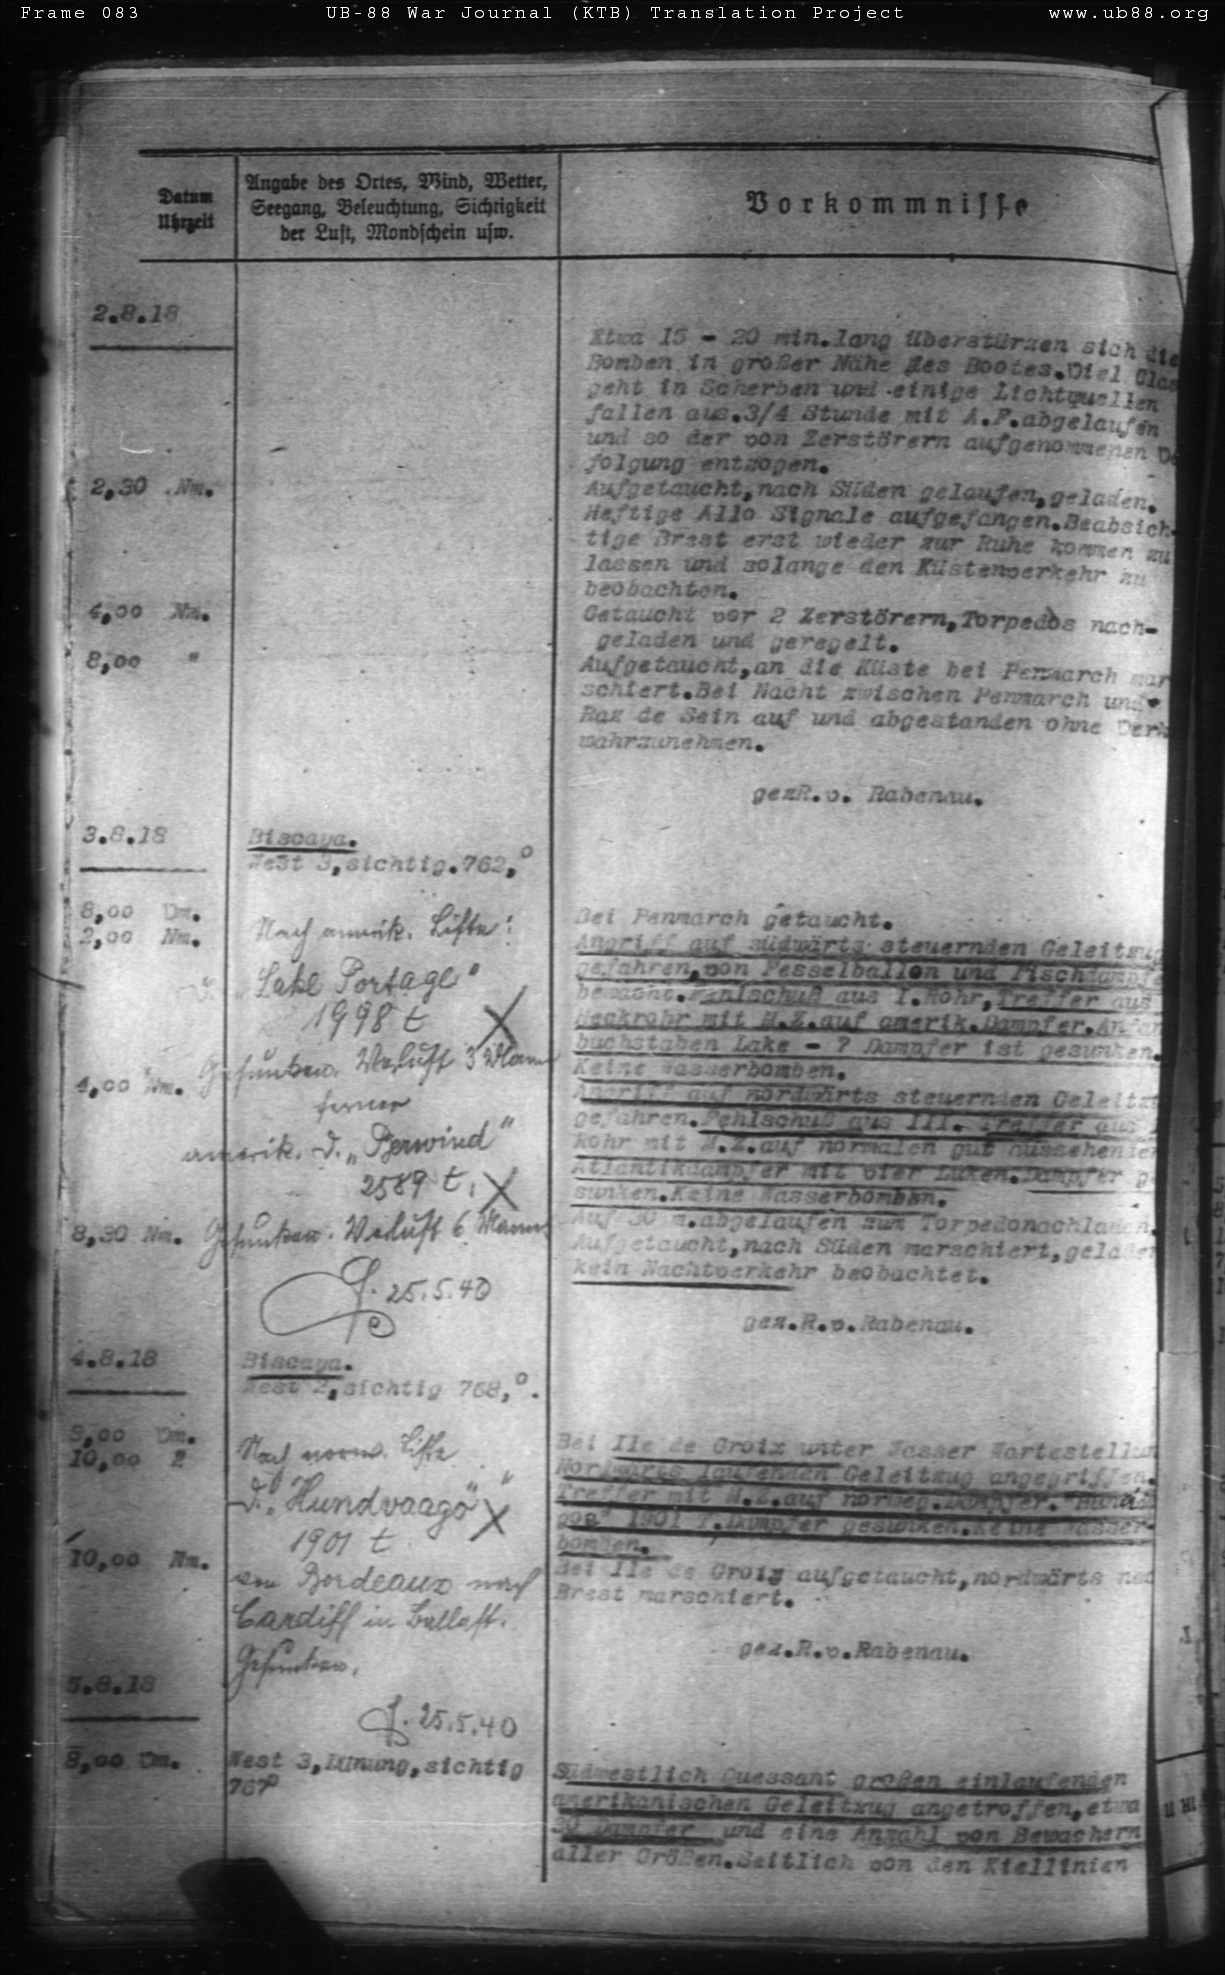 Frame 083 UB-88 War Journal (KTB) Translation Project www.ub88.org
Datum
Uhrzeit
Angabe des Ortes, Wind, Wetter,
Seegang, Beleuchtung, Sichtigkeit
der Luft, Mondschein usw.
Vorkommnisse
2.8.18
Etwa 15 - 20 min.lang überstürzen sich die
Bomben in großer Nähe des Bootes.Viel Glas
geht in Scherben und einige Lichtquellen
fallen aus.3/4 Stunde mit A.F.abgelaufen
und so der von Zerstörern aufgenommenen Ve
folgung entzogen.
2,30 Nm.
Aufgetaucht,nach Süden gelaufen,geladen.
Heftige Allo Signale aufgefangen.Beabsich-
tige Brest erst wieder zur Ruhe kommen zu
lassen und solange den Küstenverkehr zu
beobachten.
4,00 Nm.
Getaucht vor 2 Zerstörern,Torpedos nach-
geladen und geregelt.
8,00 "
Aufgetaucht,an die Küste bei Penmarch mar
schiert.Bei Nacht zwischen Penmarch und
Raz de Sein auf und abgestanden ohne Verk
wahrzunehmen.
gezR.v. Rabenau.
3.8.18
Biscaya.
West 3,sichtig.762,°
8,00 Vm.
Bei Penmarch getaucht.
2,00 Nm.
Angriff auf südwärts steuernden Geleitzug
gefahren,von Fesselballon und Fischdampfe
bewacht.Fehlschuß aus I.Rohr,Treffer aus
Heckrohr mit M.Z.auf amerik.Dampfer.Anfan
buchstaben Lake - ? Dampfer ist gesunken.
Keine Wasserbomben.
Nach amerik. Liste:
D. "Lake Portage"
1998 t X
Gesunken. Verlust 3 Mann
ferner
amerik. D. "Berwind"
2589 t, X
Gesunken. Verlust 6 Mann
25.5.40
4,00 Nm.
Angriff auf nordwärts steuernden Geleitzu
gefahren.Fehlschuß aus III. Treffer aus
Rohr mit M.Z.auf normalen gut aussehenden
Atlantikdampfer mit vier Luken.Dampfer ge
sunken.Keine Wasserbomben.
Auf 30 m.abgelaufen zum Torpedonachladen.
8,30 Nm.
Aufgetaucht,nach Süden marschiert,geladen
kein Nachtverkehr beobachtet.
gez.R.v.Rabenau.
4.8.18
Biscaya.
West 2,sichtig 768,°.
9,00 Vm.
Bei Ile de Croix unter Wasser Wartestellun
10,00
Nordwärts laufenden Geleitzug angegriffen.
Treffer mit M.Z.auf norweg.Dampfer.
1901 T.Dampfer gesunken.Keine Wasser-
bomben.
Nach norw. Liste
D. "Hundvaagö" X
1901 t
von Bordeaux nach
Cardiff in Ballast.
Gesunken.
25.5.40
10,00 Nm.
Bei Ile de Croix aufgetaucht,nordwärts nac
Brest marschiert.
gez.R.v.Rabenau.
5.8.18
8,00 Vm.
West 3,Dünung,sichtig
767°
Südwestlich Ouessant großen einlaufenden
amerikanischen Geleitzug angetroffen,etwa
30 Dampfer und eine Anzahl von Bewachern
aller Größen.Seitlich von den Kiellinien